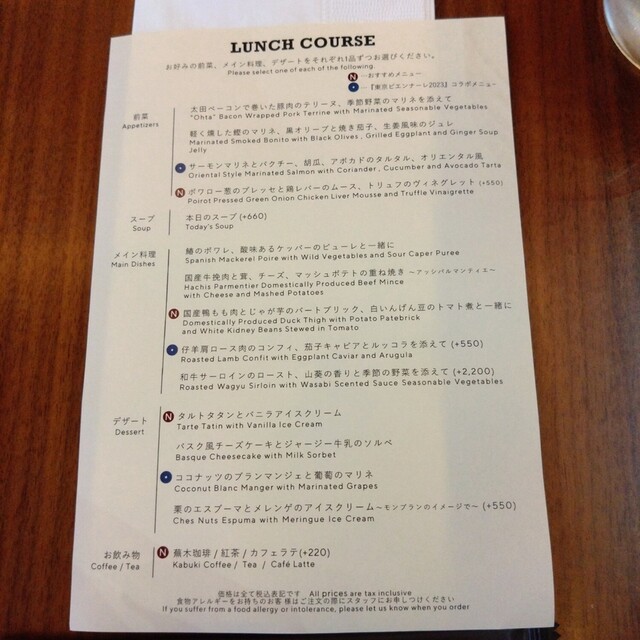 LUNCH COURSE
お好みの前菜、メイン料理、デザートをそれぞれ1品ずつお選びください。
Please select one of each of the following.
N ―おすすめメニュー
―『東京ビエンナーレ2023』コラボメニュー
前菜
Appetizers
太田ベーコンで巻いた豚肉のテリーヌ、季節野菜のマリネを添えて
"Ohta" Bacon Wrapped Pork Terrine with Marinated Seasonable Vegetables
軽く燻した鰹のマリネ、黒オリーブと焼き茄子、生姜風味のジュレ
Marinated Smoked Bonito with Black Olives , Grilled Eggplant and Ginger Soup
Jelly
サーモンマリネとパクチー、胡瓜、アボカドのタルタル、オリエンタル風
Oriental Style Marinated Salmon with Coriander , Cucumber and Avocado Tarta
N ポワロー葱のプレッセと鶏レバーのムース、トリュフのヴィネグレット (+550)
Poirot Pressed Green Onion Chicken Liver Mousse and Truffle Vinaigrette
スープ
Soup
本日のスープ (+660)
Today's Soup
メイン料理
Main Dishes
鰆のポワレ、酸味あるケッパーのピューレと一緒に
Spanish Mackerel Poire with Wild Vegetables and Sour Caper Puree
国産牛挽肉と茸、チーズ、マッシュポテトの重ね焼き ～アッシパルマンティエ～
Hachis Parmentier Domestically Produced Beef Mince
with Cheese and Mashed Potatoes
N 国産鴨もも肉とじゃが芋のパートブリック、白いんげん豆のトマト煮と一緒に
Domestically Produced Duck Thigh with Potato Patebrick
and White Kidney Beans Stewed in Tomato
仔羊肩ロース肉のコンフィ、茄子キャビアとルッコラを添えて (+550)
Roasted Lamb Confit with Eggplant Caviar and Arugula
和牛サーロインのロースト、山葵の香りと季節の野菜を添えて (+2,200)
Roasted Wagyu Sirloin with Wasabi Scented Sauce Seasonable Vegetables
デザート
Dessert
N タルトタタンとバニラアイスクリーム
Tarte Tatin with Vanilla Ice Cream
バスク風チーズケーキとジャージー牛乳のソルベ
Basque Cheesecake with Milk Sorbet
ココナッツのブランマンジェと葡萄のマリネ
Coconut Blanc Manger with Marinated Grapes
栗のエスプーマとメレンゲのアイスクリーム～モンブランのイメージで～ (+550)
Ches Nuts Espuma with Meringue Ice Cream
お飲み物
Coffee / Tea
N 蕪木珈琲 / 紅茶 / カフェラテ(+220)
Kabuki Coffee / Tea / Café Latte
価格は全て税込表記です All prices are tax inclusive
食物アレルギーをお持ちのお客様はご注文の際にスタッフにお申しつけください
If you suffer from a food allergy or intolerance, please let us know when you order